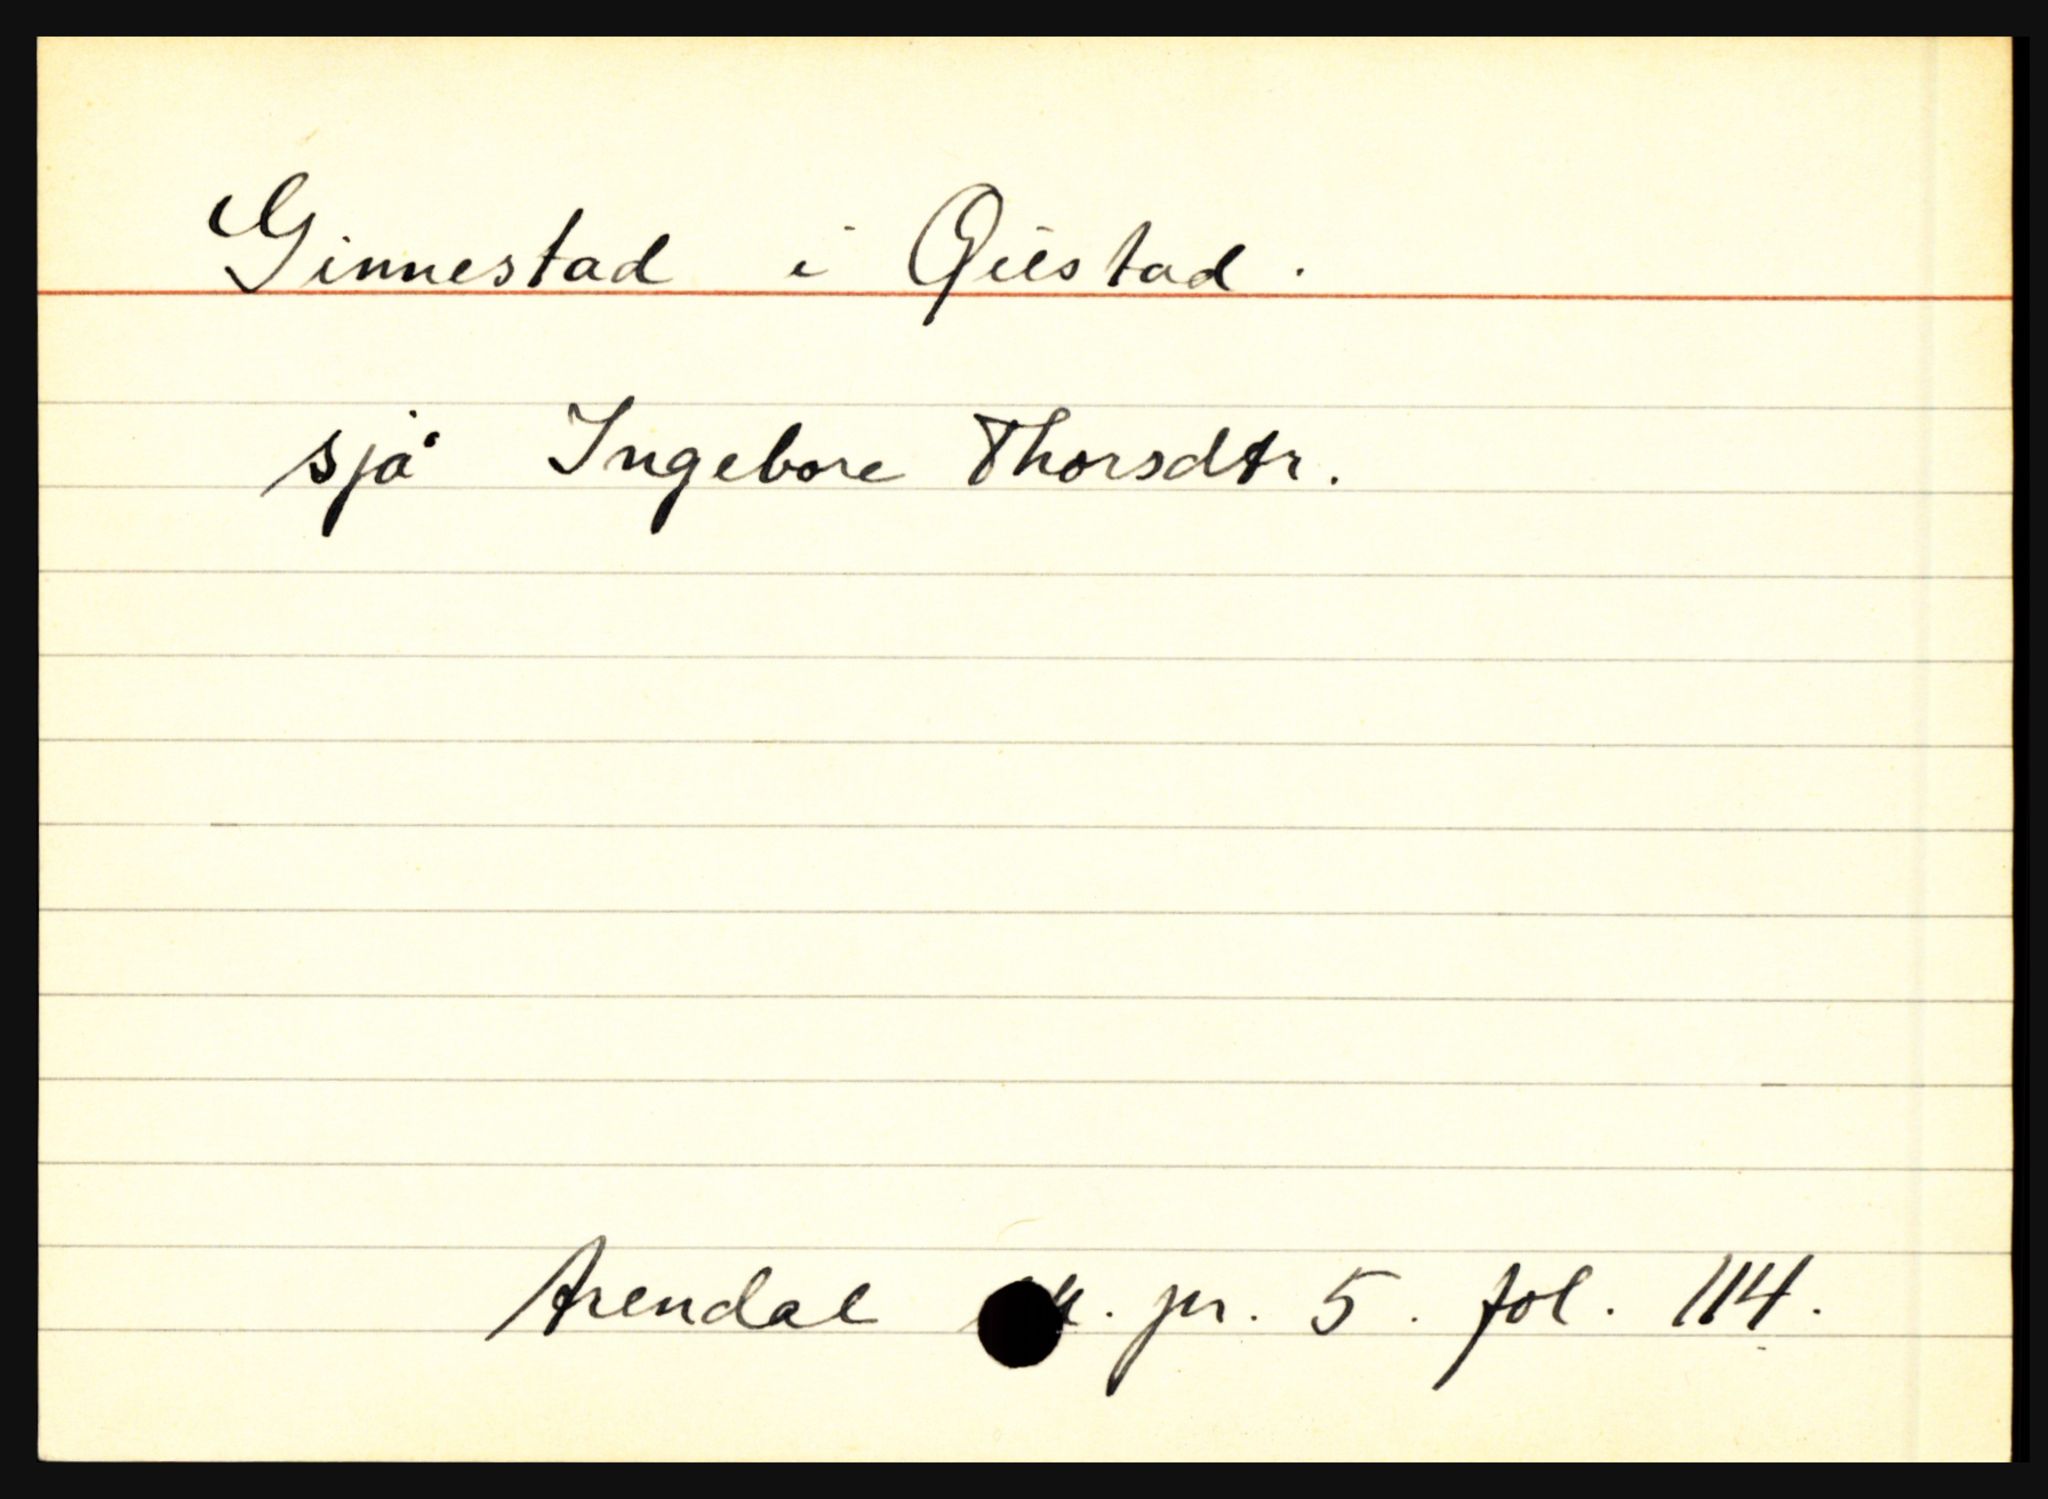 Ginnestad i Øiestad.
sjå Ingebore Thorsdtr.
Arendal pr. 5. fol. 114.